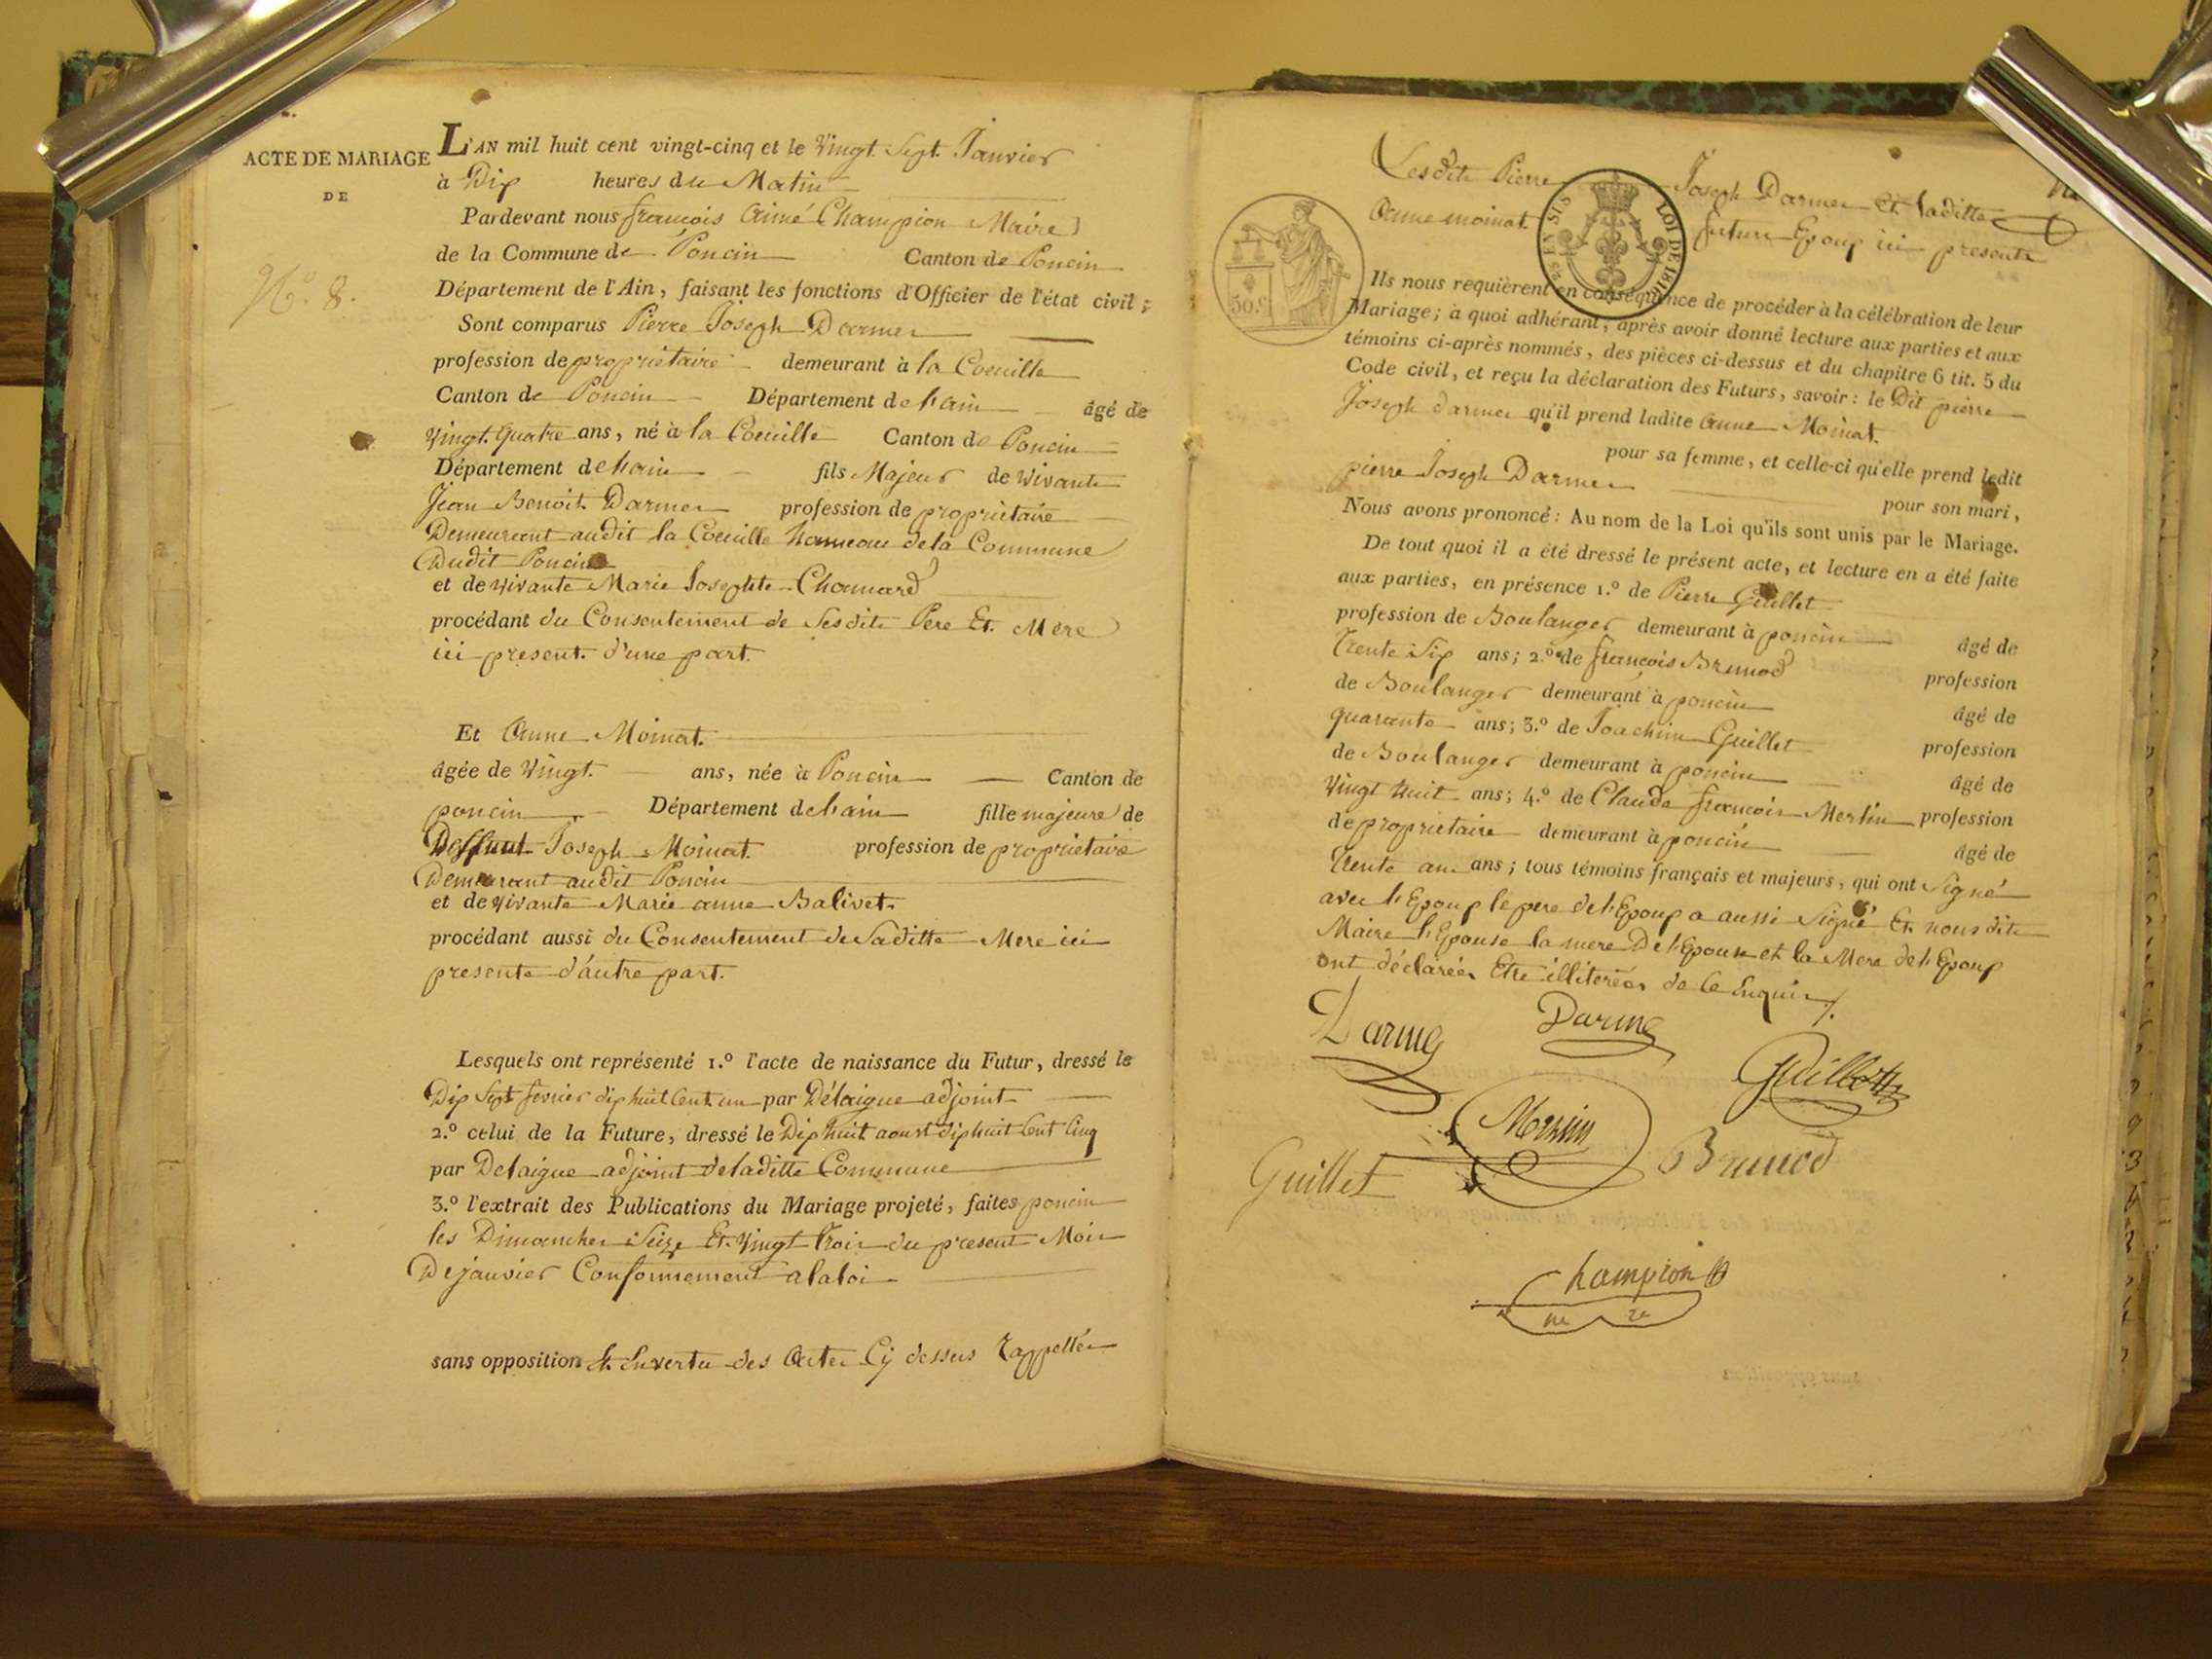 ACTE DE MARIAGE
DE
N.º 8.
L'AN mil huit cent vingt-cinq et le Vingt Sept Janvier
à Dix heures du Matin
Pardevant nous françois Aimé Champion Maire
de la Commune de Poncin Canton de Poncin
Département de l'Ain, faisant les fonctions d'Officier de l'état civil ;
Sont comparus Pierre Joseph Darmer
profession de propriétaire demeurant à la Coeuille
Canton de Poncin Département de lain âgé de
Vingt Quatre ans, né à la Coeuille Canton de Poncin
Département de lain fils Majeur de Vivants
Jean Benoit Darmer profession de propriétaire
Demeurant audit la Coeuille hameau de la Commune
Dudit Poncin
et de vivante Marie Josephte Chanard
procédant du Consentement de Sesdits Pere Et Mere
ici present d'une part.
Et Anne Moinat.
âgée de Vingt ans, née à Poncin Canton de
poncin Département de lain fille majeure de
Deffunt Joseph Moinat profession de propriétaire
Demeurant audit Poncin
et de vivante Marie anne Balivet
procédant aussi du Consentement de Saditte Mere ici
presente d'autre part.
Lesquels ont représenté 1.º l'acte de naissance du Futur, dressé le
Dix Sept fevrier dix huit Cent un par Délaigue adjoint
2.º celui de la Future, dressé le Dix huit aoust dix huit Cent Cinq
par Delaigue adjoint deladitte Commune
3.º l'extrait des Publications du Mariage projeté, faites poncin
les Dimanches Seize Et Vingt Trois du present Mois
De janvier Conformement a la loi
sans opposition Et Envertu des Actes Cy dessus rappellés
Lesdits Pierre Joseph Darmer Et laditte
Anne moinat. futurs Epoux ici presents
25 EN SUS LOI DE 1816
50.C
Ils nous requièrent en conséquence de procéder à la célébration de leur
Mariage ; à quoi adhérant, après avoir donné lecture aux parties et aux
témoins ci-après nommés, des pièces ci-dessus et du chapitre 6 tit. 5 du
Code civil, et reçu la déclaration des Futurs, savoir : le Dit pierre
Joseph darmer qu'il prend ladite Anne Moinat.
pour sa femme, et celle-ci qu'elle prend ledit
pierre Joseph Darmer pour son mari,
Nous avons prononcé : Au nom de la Loi qu'ils sont unis par le Mariage.
De tout quoi il a été dressé le présent acte, et lecture en a été faite
aux parties, en présence 1.º de Pierre Guillet
profession de Boulanger demeurant à poncin âgé de
Trente Six ans ; 2.º de françois Brunod profession
de Boulanger demeurant à poncin âgé de
quarante ans ; 3.º de Joachim Guillet profession
de Boulanger demeurant à poncin âgé de
Vingt huit ans ; 4.º de Claude françois Merlin profession
de propriétaire demeurant à poncin âgé de
Trente ans ; tous témoins français et majeurs, qui ont Signé
avec l'Epoux le pere de l'Epoux a aussi Signé Et nousdits
Maire l'Epouse la mere De l'Epouse et la Mere de l'Epoux
ont déclarées Etre illiterées de Ce Enquis
Darme Darme
Guillet
Merlin
Guillet Brunod
Champion